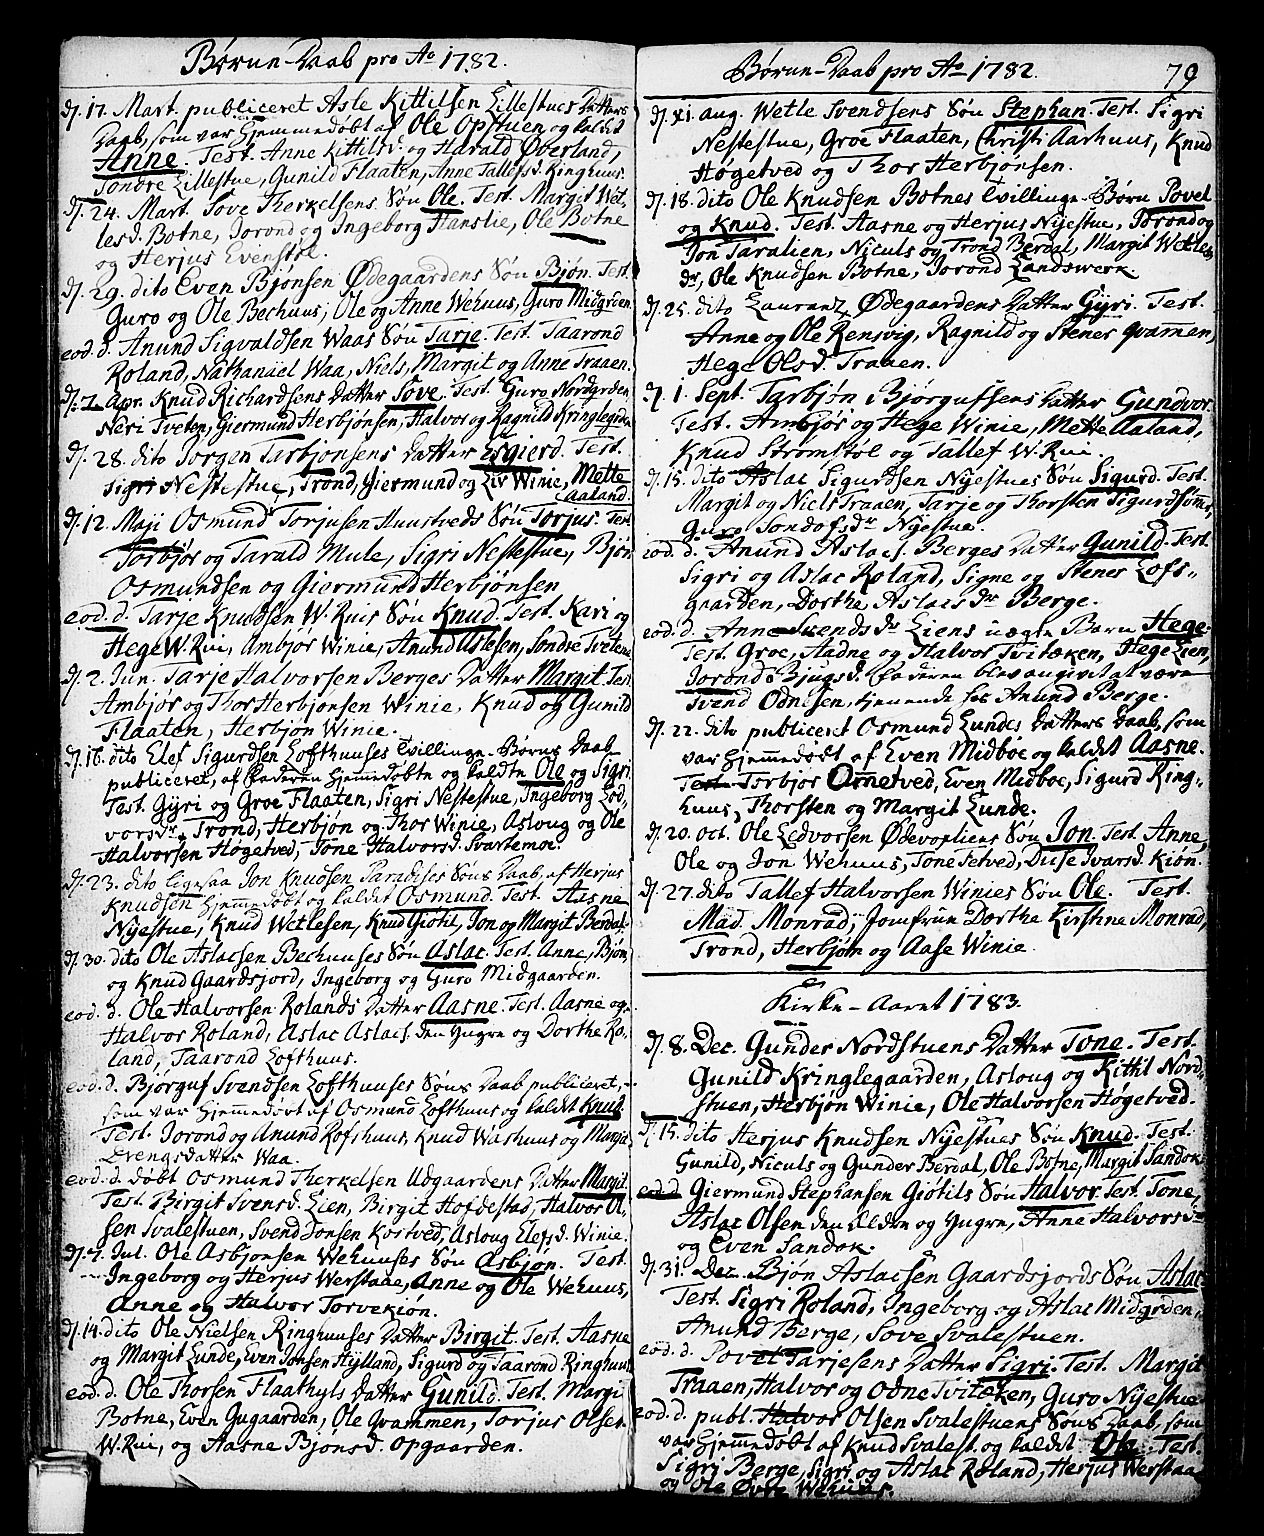 Børne-Daab pro Ao 1782.
D. 17. Mart. publiceret Asle Kittilsen Lillestues Datters
Daab, som var hjemmedøbt af Ole Opstuen og kaldet
Anne. Test. Anne Kittilsd. og Harald Øverland,
Tondre Lillestue, Gunild Flaaten, Anne Tallefsd. Ringhuus.
D. 24. Mart. Sove Therkelsens Søn Ole. Test. Margit Wet-
lesd. Botne, Jorond og Ingeborg Hanslie, Ole Botne
og Herjus Evenstøl.
D. 29. dito Even Bjønsen Ødegaardens Søn Bjøn. Test.
Guro og Ole Bechuus, Ole og Anne Wehuus, Guro Midgrden
eod. d. Anund Sigvaldsen Waas Søn Tarje. Test. Taarond
Roland, Nathaniel Waa, Niels, Margit og Anne Traaen.
D. 7 Apr. Knud Richardsens Datter Sove. Test. Guro Nordgrden
Neri Tveten, Giermund Herbjønsen, Halvor og Ragnild Kringlegrden
D. 28. dito Jorgen Tarbjønsens Datter Esgierd. Test.
Sigri Nestestue, Trond, Giermund og Liv Winie, Mette
Aaland.
D. 12. Maji Osmund Torjusen Huustveds Søn Torjus. Test.
Torbjør og Tarald Mule, Sigri Nestestue, Bjøn
Osmundsen og Giermund Herbjønsen
eod. d. Tarje Knudsen W. Ruis Søn Knud. Test. Kari og
Hege W. Rui, Ambjør Winie, Anund Aslesen, Sondre Tveten
D. 2. Jun. Tarje Halvorsen Berges Datter Margit. Test
Ambjør og Thor Herbjønsen Winie, Knud og Gunild
Flaaten, Herbjøn Winie.
D. 16. dito Elef Sigurdsen Lofthuuses Tvillinge-Børns Daab
publiceret, af Faderen hjemedøbte og kaldte Ole og Sigri
Test. Gyri og Groe Flaaten, Sigri Nestestue, Ingeborg Lod-
vorsdr. Trond, Herbjøn og Thor Winie, Asloug og Ole
Halvorsen Høgetved, Tone Halvorsd. Svartemoe.
D. 23. dito ligesaa Jon Knudsen Paradises Søns Daab, af Herjus
Knudsen hjemmedøbt og kaldet Osmund. Test. Aasne
Nyestue, Knud Wetlesen, Knud Giotil, Jon og Margit Berdal.
D. 30. dito Ole Aslacsen Bechuuses Søn Aslac. Test. Anne, Bjøn
og Knud Gaardsjord, Ingeborg og Guro Midgaarden.
eod. d. Ole Halvorsen Rolands Datter Aasne. Test. Aasne og
Halvor Roland, Aslac Aslacs. den Yngre og Dorthe Ro-
land, Taarond Lofthuus.
eod. d. Bjørguf Svendsen Lofthuuses Søns Daab publiceret,
som var hjemmedøbt af Osmund Lofthuus og kaldet Knud.
Test. Jorond og Anund Rofshuus, Knud Washuus og Margit
Drengsdatter Waa.
eod. d. døbt Osmund Therkelsen Udgaardens Datter Margit.
Test. Birgit Svensd. Lien, Birgit Hofdestad, Halvor Ol-
sen Svalestuen, Svend Jonsen Kostved, Asloug Elefsd. Winie.
D. 7. Jul. Ole Asbjønsen Wehuuses Søn Asbjøn. Test.
Ingeborg og Herjus Werstaae, Anne og Ole Wehuus,
Anne og Halvor Torvekiøn.
D. 14. dito Ole Nielsen Ringhuuses Datter Birgit. Test. Aasne
og Margit Lunde, Even Jonsen Hylland, Sigurd og Taarond Ringhuus
eod. d. Ole Thorsen Flaathyls Datter Gunild. Test. Margit
Botne, Even Gugaarden, Ole Qvammen, Torjus Olsen
W. Rui, og Aasne Bjønsd. Opgaarden.
Børne-Daab pro Ao 1782. 79
D. XI. aug. Wetle Svendsens Søn Stephan. Test. Sigri
Nestestue, Groe Flaaten, Christi Aarhuus, Knud
Høgetved og Thor Herbjønsen.
D. 18. dito Ole Knudsen Botnes Tvillinge-Børn Povel
og Knud. Test. Aasne og Herjus Nyestue, Jorond og
Jon Taralien, Niculs og Trond Berdal, Margit Wetles
dr, Ole Knudsen Botne, Jorond Landswerk.
D. 25. dito Laurantz Ødegaardens Datter Gyri. Test.
Anne og Ole Rensvig, Ragnild og Stenes Qvaman,
Hege Olsd. Traaen.
D. 1. Sept. Tarbjøn Bjørgufsens Datter Gundvor.
Test. Ambjør og Hege Winie, Mette Aaland,
Knud Stromstøl og Tallef W. Rui.
D. 15. dito Aslac Sigurdsen Nyestues Søn Sigurd. Test.
Margit og Niels Traaen, Tarje og Thorsten Sigurdsøner,
Guro Tondofsdr Nyestue.
eod. d. Anund Aslacs. Berges Datter Gunild. Test.
Sigri og Aslac Roland, Signe og Stenes Lofs-
gaarden, Dorthe Aslacsdr Berge.
eod. d. Anne Svendsdr Liens uægte Barn Hege.
Test. Groe, Aadne og Halvor Tvitæken, Hege Lien,
Jorond Bjugsd. (Faderen blev angivet at være
Svend Odnesen, tjenende hos Anund Berge.
D. 22. dito publiceret Osmund Lundes Datters Daab, som
var hjemmedøbt af Even Midboe og kaldet Aasne.
Test. Torbjør Ornetved, Even Medboe, Sigurd Ring-
huus, Thorsten og Margit Lunde.
D. 20. Oct. Ole Ledvorsen Ødevopliens Søn Jon. Test. Anne,
Ole og Jon Wehuus, Tone Setved, Duse Ivarsd. Kiøn.
D. 27. dito Tallef Halvorsen Winies Søn Ole. Test.
Mad. Monrad, Jomfrue Dorthe Kirstine Monrad,
Trond, Herbjøm og Aase Winie.
Kirke-Aaret 1783.
D. 8. Dec. Gunder Nordstuens Datter Tone. Test.
Gunild Kringlegaarden, Asloug og Kittil Nord-
stuen, Herbjøn Winie, Ole Halvorsen Høgetved.
D. 15. dito Herjus Knudsen Nyestues Søn Knud. Test.
Gunild, Niculs og Gunder Berdal, Ole Botne, Margit Sandok.
eod. d. Giermund Stephansen Giotils Søn Halvor Test. Tone,
Aslac Olsen den Ældre og Yngre, Anne Halvorsdr
og Even Sandok.
D. 31. Dec. Bjøn Aslacsen Gaardsjords Søn Aslac.
Test. Sigri Roland, Ingeborg og Aslac Midgrden,
Anund Berge, Sove Svalestuen.
eod. d. Povel Tarjesens Datter Sigri. Test. Margit
Traaen, Halvor og Odne Tvitæken, Guro Nyestue
eod. d. publ. Halvor Olsen Svalestuens Søns Daab, som
var hjemmedøbt af Knud Svalest. og kaldet Ole. Test.
Sigri Berge, Sigri og Aslac Roland, Herjus Werstaae
og Ole Øvre Wehuus.